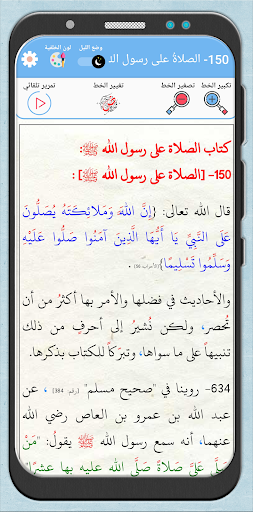 150- الصلاةُ على رسول الله
لون الخلفية
وضع الليل
تكبير الخط
تصغير الخط
تغيير الخط
تمرير تلقائي
كتاب الصلاة على رسول الله ﷺ:
150- [الصلاة على رسول الله ﷺ] :
قال الله تعالى: {إِنَّ اللَّهَ وَمَلائِكَتَهُ يُصَلُّونَ
عَلَى النَّبِيِّ يَا أَيُّهَا الَّذِينَ آمَنُوا صَلُّوا عَلَيْهِ
وَسَلِّمُوا تَسْلِيمًا} [الأحزاب: 56] .
والأحاديث في فضلها والأمر بها أكثرُ من أن
تُحصر، ولكن نُشيرُ إلى أحرفٍ من ذلك
تنبيهاً على ما سواها، وتبرّكاً للكتاب بذكرها.
634- روينا في "صحيح مسلم" [رقم: 384] ، عن
عبد الله بن عمرو بن العاص رضي الله
عنهما، أنه سمع رسول الله ﷺ يقولُ: "مَنْ
صَلَّى عَلَيَّ صَلاةً صَلَّى الله عليه بها عَشْرًا"